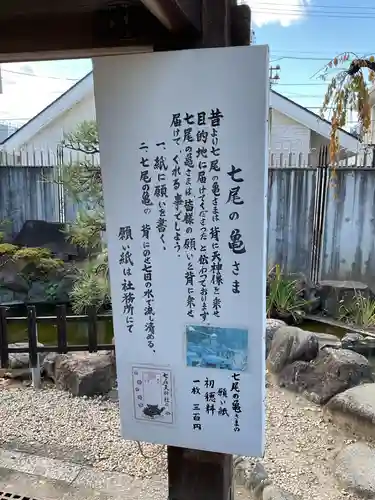 七尾の亀さま
昔より七尾の亀さまは背に乗せ
目的地に届けてくださったと伝わっております
七尾の亀さまは皆様の願いを背に乗せ
届けてくれる事でしょう。
一、紙に願いを書く
二、七尾の亀の背にのせ七回の水で流し清める。
願い紙は社務所にて
七尾の亀さまの
願い紙
初穂料
一枚 三百円